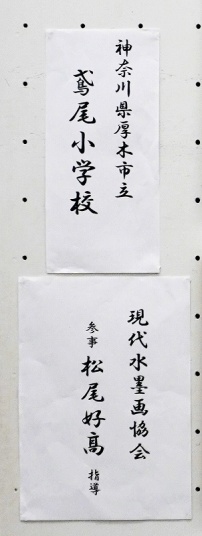 神奈川県厚木市立
鳶尾小学校
現代水墨画協会
参事 松尾好高 指導